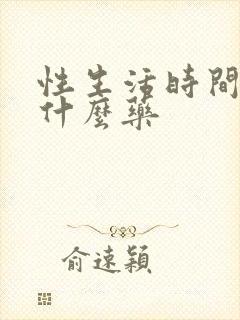 性生活時間
什麼藥
俞遠穎